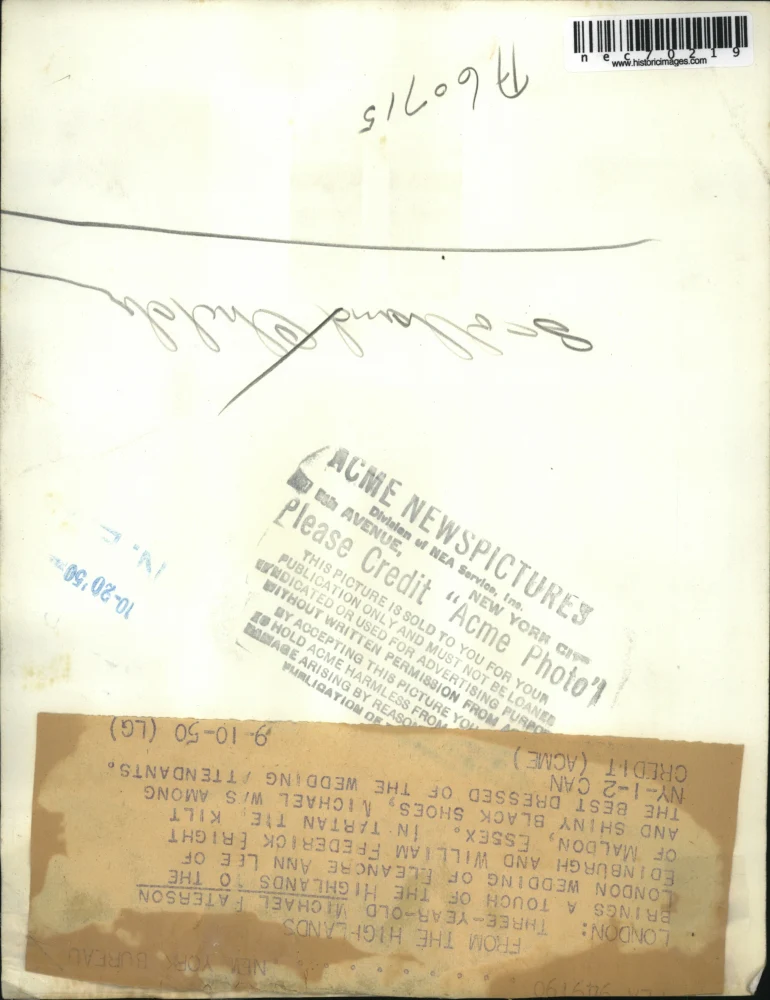 nec70219
www.historicimages.com
A60715
Scotland Children
ACME NEWSPICTURES
Division of NEA Service, Inc.
8th AVENUE, NEW YORK CITY
Please Credit "Acme Photo"
THIS PICTURE IS SOLD TO YOU FOR YOUR
PUBLICATION ONLY AND MUST NOT BE LOANED
SYNDICATED OR USED FOR ADVERTISING PURPOSES
WITHOUT WRITTEN PERMISSION FROM
BY ACCEPTING THIS PICTURE YOU
TO HOLD ACME HARMLESS FROM
DAMAGE ARISING BY REASON
PUBLICATION OF
N.E.
10-20'50
NEW YORK BUREAU
FROM THE HIGHLANDS
LONDON: THREE-YEAR-OLD MICHAEL PATERSON
BRINGS A TOUCH OF THE HIGHLANDS TO THE
LONDON WEDDING OF ELEANORE ANN LEE OF
EDINBURGH AND WILLIAM FREDERICK BRIGHT
OF MALDON, ESSEX. IN TARTAN TIE, KILT
AND SHINY BLACK SHOES, MICHAEL WAS AMONG
THE BEST DRESSED OF THE WEDDING ATTENDANTS.
NY-1-2 CAN
CREDIT (ACME) 9-10-50 (LG)